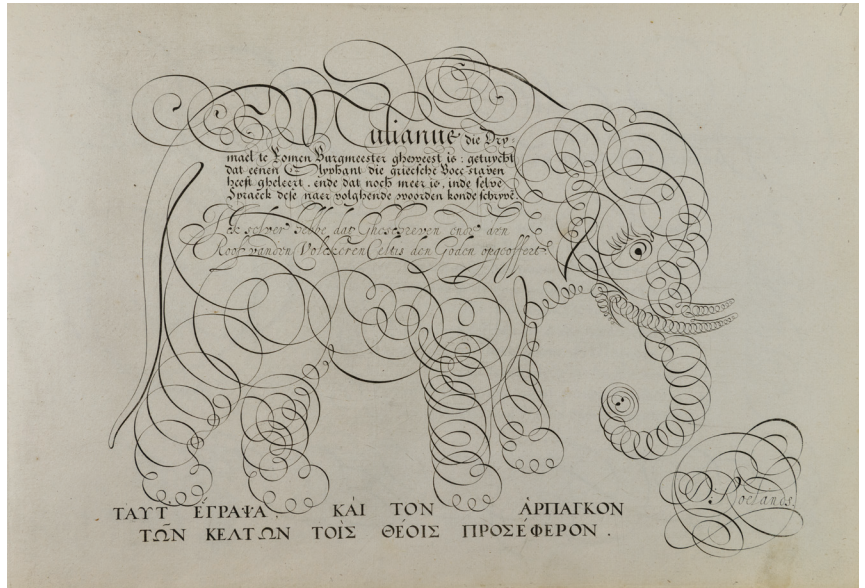 Mulianus die Dry-
mael te Romen Burgmeester gheweest is: getuycht
dat eenen Olyphant die griecsche Boec staven
heeft gheleert, ende dat noch meer is, inde selve
Spraeck dese naer volghende woorden konde schryve
Ick selver hebbe dat Gheschreven ende den
Roof vanden Volckeren Celtis den Goden opgeoffert.
ΤΑΥΤ ἘΓΡΑΨΑ. ΚΑῚ ΤΟΝ ἈΡΠΑΓΚΟΝ
ΤΩ͂Ν ΚΕΛΤΩΝ ΤΟῖΣ ΘΕΟΙΣ ΠΡΟΣΕΦΕΡΟΝ.
D. Roelands.